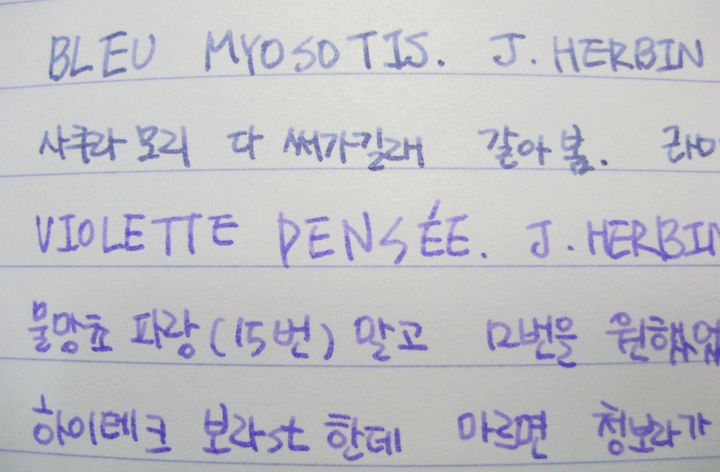 BLEU MYOSOTIS. J. HERBIN
사쿠라모리 다 써가길래 갈아봄.
VIOLETTE PENSÉE. J. HERBIN
물망초 파랑(15번) 말고 12번을
하이테크 보라st 한테 마르면 청보라가